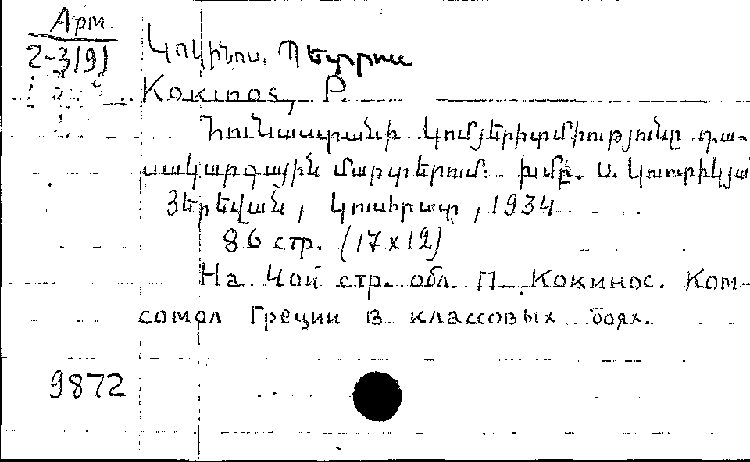 Арм.
2-3(9)
Կոկինոս, Պետրոս
Kokinos, P.
Հունաստանի կոմյերիտմիությունը դա-
սակարգային մարտերում: խմբ. Ա.
Յերեվան, Կուսհրատ, 1934
86 стр. (17x12)
На 4ой стр. обл. П. Кокинос. Ком-
сомол Греции в классовых боях.
9872